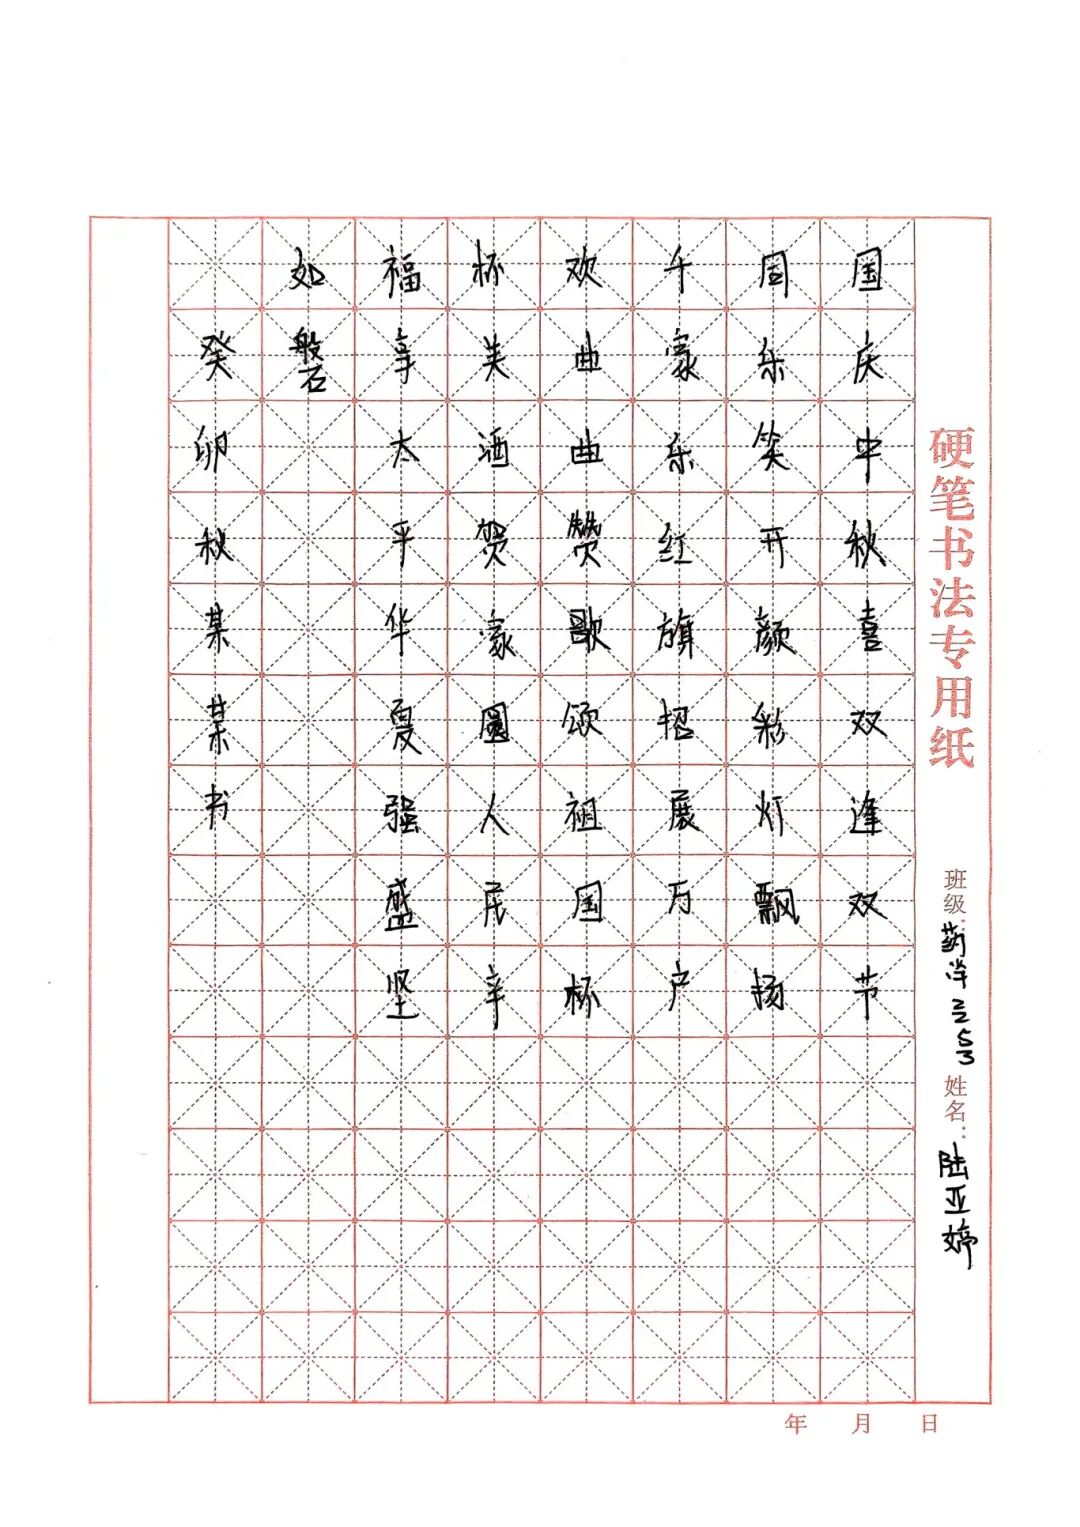 硬笔书法专用纸
班级:药 姓名:陆亚婷
国庆中秋喜双逢双节
同乐笑开颜彩灯飘扬
千家乐红旗招展万户
欢曲曲赞歌颂祖国杯
杯美酒贺家圆人民辛
福享太平华夏强盛坚
如磐
癸卯秋某某书
年 月 日